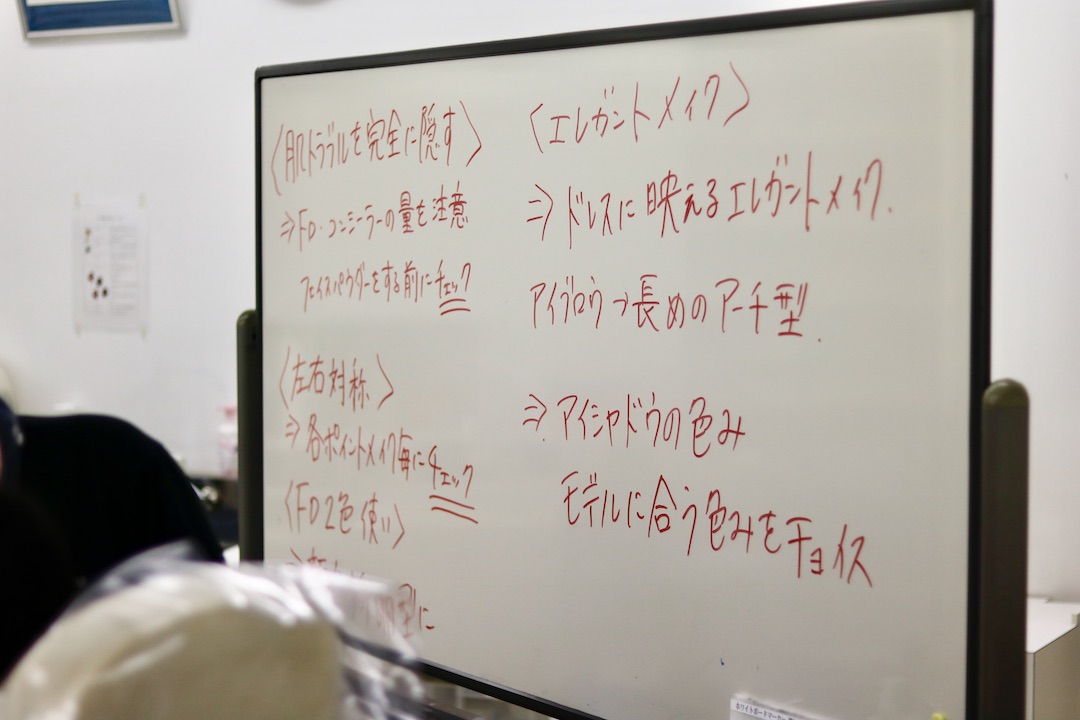 〈肌トラブルを完全に隠す〉
⇒FD・コンシーラーの量も注意
フェイスパウダーをする前にチェック
〈左右対称〉
⇒各ポイントメイク毎にチェック
〈FD2色使い〉
型に
〈エレガントメイク〉
⇒ドレスに映えるエレガントメイク.
アイブロウ→長めのアーチ型.
⇒アイシャドウの色み
モデルに合う色みをチョイス
ホワイトボードマーカー